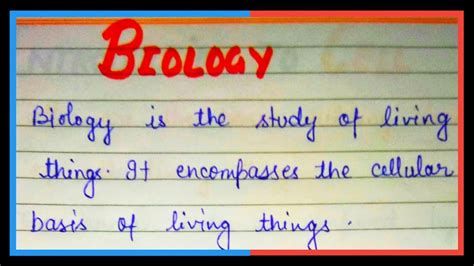 BIOLOGY
Biology is the study of living
things. It encompasses the cellular
basis of living things.